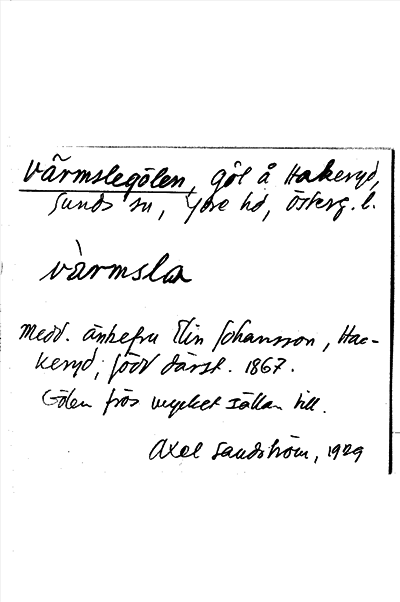 Värmslegölen, göl å Hakeryd,
Sunds sn, Ydre hd, Österg. l.
värmsla
Medd. änkefru Elin Johansson, Hac-
keryd, född därst. 1867.
Gölen frös mycket sällan till.
Axel Sandström, 1929